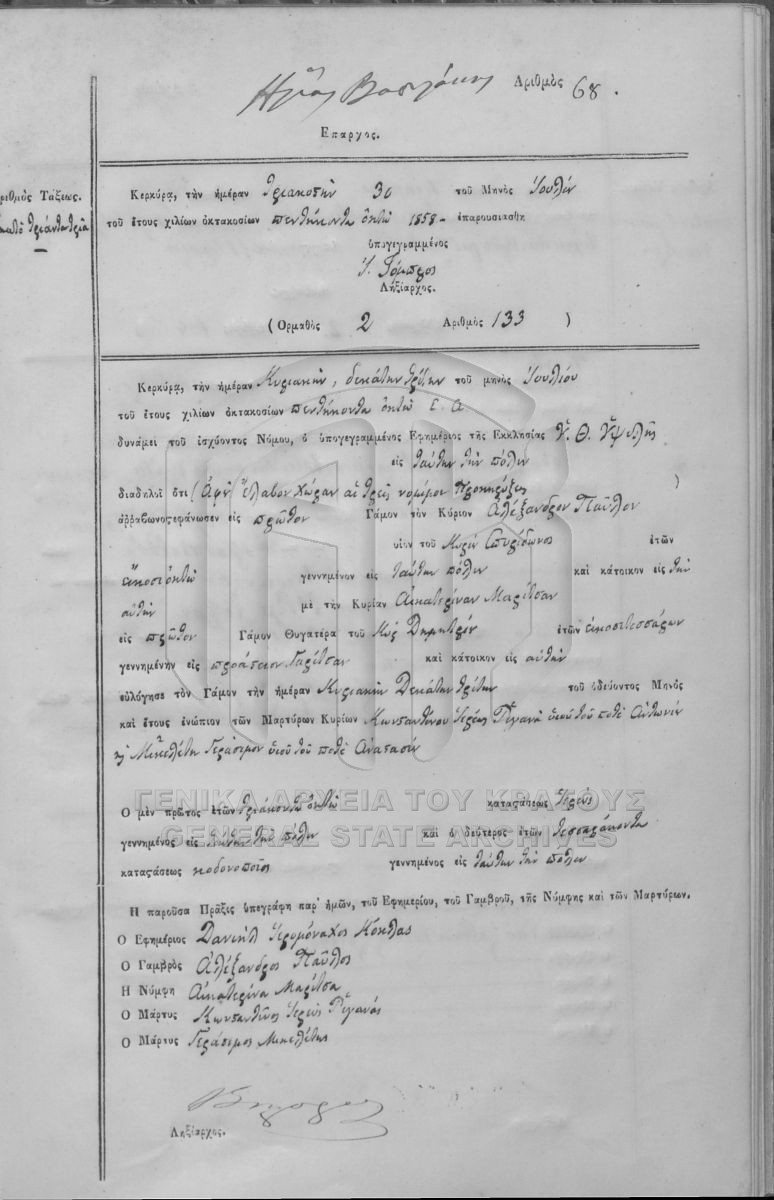 Αριθμὸς 68.
Επαργος.
ριθμὸς Τάξεως.
Κερκύρα, τὴν ἡμέραν τριακοστὴν 30 τοῦ Μηνὸς Ἰουλίου
τοῦ ἔτους χιλίων ὀκτακοσίων πενθήκοντα ὀκτὼ 1858 - ἐπαρουσιασθη
ὑπογεγραμμένος
Ληξίαρχος.
(Ορμαθὸς 2 Αριθμὸς 133 )
Κερκύρα, τὴν ἡμέραν Κυριακὴν, δεκάτην τρίτην τοῦ μηνὸς Ἰουλίου
τοῦ ἔτους χιλίων ὀκτακοσίων πενθήκοντα ὀκτὼ Ε. Α.
δυνάμει τοῦ ἰσχύοντος Νόμου, ὁ ὑπογεγραμμένος Ἐφημέριος τῆς Εκκλησίας Ὑ. Θ. Ὑψηλῆς
εἰς ταύτην τὴν πόλιν
διαδηλοῖ ὅτι (Ἀφ' οὗ ἔλαβον χώραν αἱ τρεῖς νομίμοι προκηρύξεις )
ἀῤῥαβωνοςεφάνωσεν εἰς πρῶτον Γάμον τὸν Κύριον Ἀλέξανδρον Παῦλον
υἱὸν τοῦ Κυρίου Σπυρίδωνος ἐτῶν
εἴκοσι ὀκτὼ γεννημένον εἰς ταύτην πόλιν καὶ κάτοικον εἰς τὴν
αὐτὴν μὲ τὴν Κυρίαν Αἰκατερίναν Μαρίτσαν
εἰς πρῶτον Γάμον Θυγατέρα τοῦ Κὺρ Δημητρίου ἐτῶν εἰκοσιτεσσάρων
γεννημένην εἰς προάστειον Γαρίτσαν καὶ κάτοικον εἰς αὐτὴν
εὐλόγησε τὸν Γάμον τὴν ἡμέραν Κυριακὴν Δεκάτην τρίτην τοῦ ὁδεύοντος Μηνὸς
καὶ ἔτους ἐνώπιον τῶν Μαρτύρων Κυρίων Κωνσταντίνου Ἱερέως Ῥιγανᾶ υἱοῦ τοῦ ποτὲ Ἀντωνίου
Γεράσιμον υἱοῦ τοῦ ποτὲ Ἀναστασίου
Ο μὲν πρῶτος ἐτῶν τριάκοντα ὀκτὼ καταςάσεως Ἱερεὺς
γεννημένος εἰς ταύτην τὴν πόλιν καὶ ὁ δεύτερος ἐτῶν τεσσαράκοντα
καταςάσεως γεννημένος εἰς ταύτην τὴν πόλιν
Η παροῦσα Πρᾶξις ὑπεγράφη παρ' ἡμῶν, τοῦ Εφημερίου, τοῦ Γαμβροῦ, τῆς Νύμφης καὶ τῶν Μαρτύρων.
Ο Ἐφημέριος Δανιὴλ Ἱερομόναχος
Ο Γαμβρὸς Ἀλέξανδρος Παῦλος
Η Νύμφη Αἰκατερίνα Μαρίτσα
Ο Μάρτυς Κωνσταντῖνος Ἱερεὺς Ῥιγανᾶς
Ο Μάρτυς Γεράσιμος
Ληξίαρχος.
ΓΕΝΙΚΑ ΑΡΧΕΙΑ ΤΟΥ ΚΡΑΤΟΥΣ
GENERAL STATE ARCHIVES